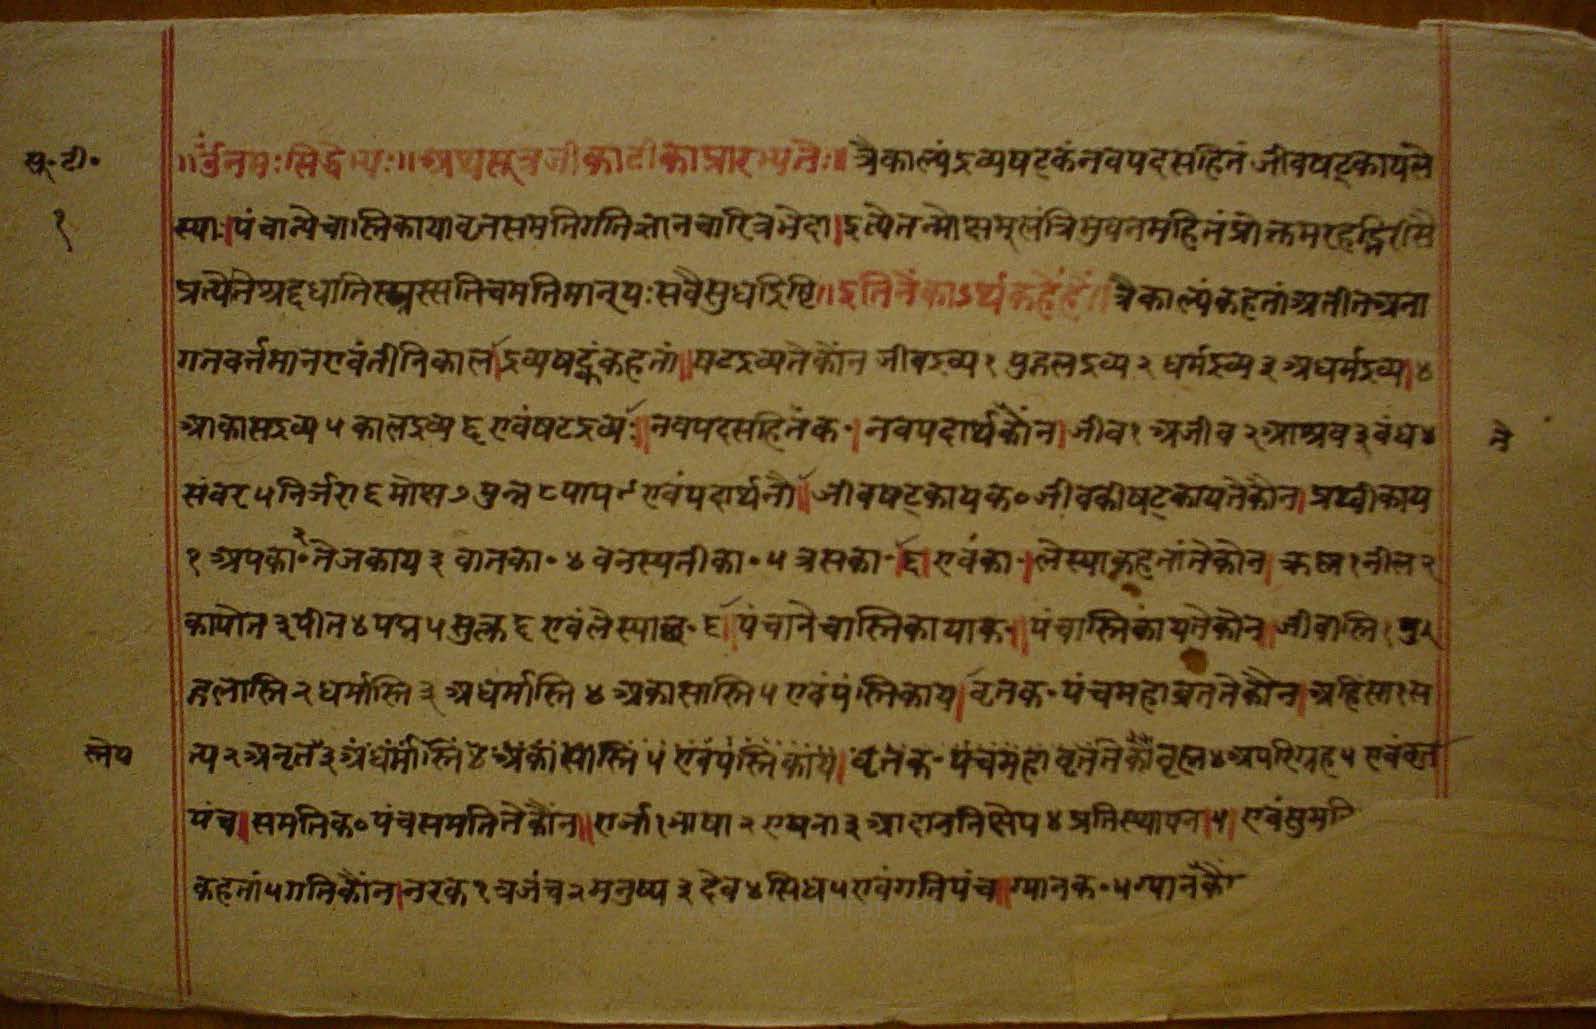 सू॰टी॰
१
॥ॐनमःसिद्धेभ्यः॥अथसूत्रजीकाटीकाप्रारभ्यतेः॥त्रैकाल्यंद्रव्यषट्कंनवपदसहितंजीवषट्कायले
स्याः।पंचान्येचास्तिकायावृतसमतिगतिज्ञानचारित्रभेदा।इत्येतन्मोक्षमूलंत्रिभुवनमहितंप्रोक्तमरहद्भिरीसै
प्रत्येतिश्रद्दधातिस्पृस्सतिचमतिमान्यःसवैसुधद्रिष्टि॥इतिनैंकाऽर्थकहैंहैं॥त्रैकाल्यंकहतांअतीतअना
गतवर्त्तमानएवंतीनिकाल।द्रव्यषट्कंकहतां॥षटद्रव्यतेकौंन जीवद्रव्य१ पुद्गलद्रव्य२ धर्मद्रव्य३ अधर्मद्रव्य।४
आकासद्रव्य५ कालद्रव्य६ एवंषटद्रव्यः।नवपदसहितंक॰।नवपदार्थकौंन।जीव१ अजीव२ आश्रव३ बंध४
ते
संवर५ निर्जरा६ मोक्ष७ पुन्न८ पाप९ एवंपदार्थनौ॥जीवषट्कायक॰जीवकीषट्कायतेकौन।प्रथ्वीकाय
१ अपका॰२ तेजकाय३ वातका॰४ वनस्पतीका॰५ त्रसका॰।६।एवंका॰।लेस्याकहतांतेकौन।क्रष्न१ नील२
कापोत३ पीत४ पद्म५ सुक्ल६ एवंलेस्या ६।पंचानेचास्तिकायाक॰।पंचास्तिकायतेकौन॥जीवास्ति१ पु
द्गलास्ति२ धर्मास्ति३ अधर्मास्ति४ अकासास्ति५ एवंपंस्तिकाय।वृतक॰पंचमहाव्रततेकौन।अहिंसा१स
स्तेय
त्य२ अनृत३ अधर्मास्ति४ अकासास्ति५ एवंपंस्तिकाय।वृतक॰पंचमहावृततेकौ अपरिग्रह५ एवंवृत
पंच॥समतिक॰पंचसमतितेकौंन॥एर्जा१भाषा२ एषना३ आदाननिक्षेप४ प्रतिस्थापन।५।एवंसुमति
कहतां५गतिकौंन।नरक१ त्रजंच२ मनुष्य३ देव४ सिध५ एवंगतिपंच॥ग्यानक॰५ग्यानकौं